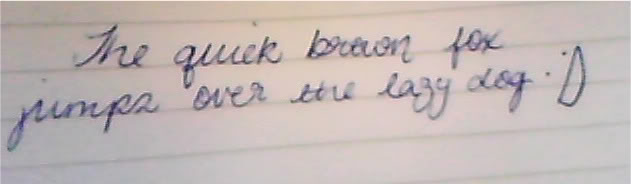 The quick brown fox
jumps over the lazy dog. :)